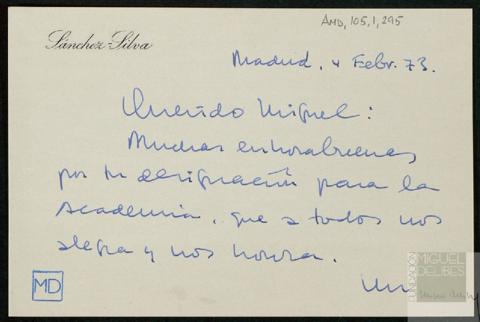 AMD, 105, 1, 295
Sánchez-Silva
Madrid, 4 Febr. 73.
Querido Miguel:
Muchas enhorabuenas
por tu designación para la
Academia, que a todos nos
alegra y nos honra.
Un
MD
FUNDACIÓN
MIGUEL
DELIBES